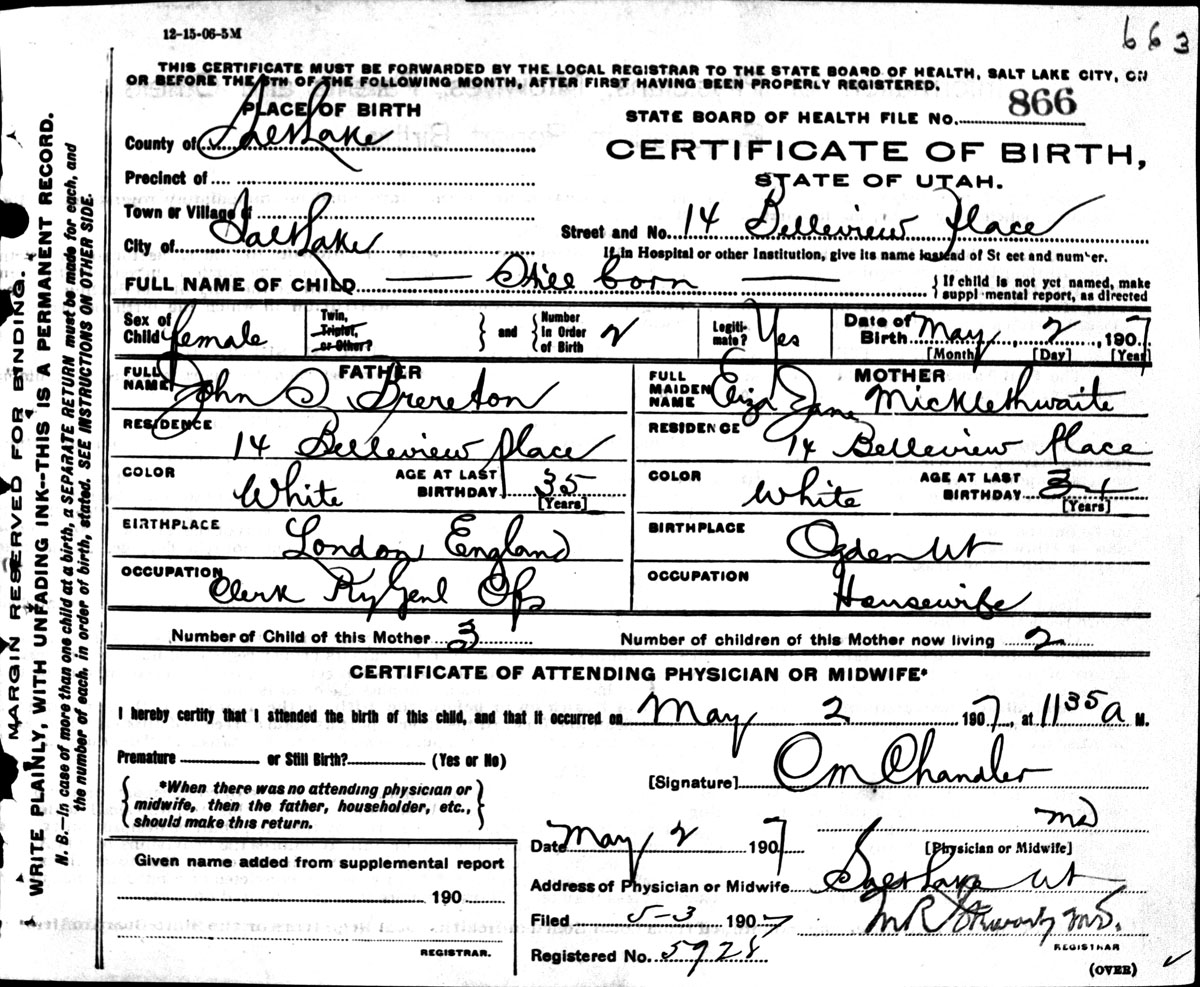 12-15-06-5M
663
THIS CERTIFICATE MUST BE FORWARDED BY THE LOCAL REGISTRAR TO THE STATE BOARD OF HEALTH, SALT LAKE CITY, ON
OR BEFORE THE 5TH OF THE FOLLOWING MONTH, AFTER FIRST HAVING BEEN PROPERLY REGISTERED.
PLACE OF BIRTH
County of Salt Lake
Precinct of
Town or Village of
City of Salt Lake
STATE BOARD OF HEALTH FILE No. 866
CERTIFICATE OF BIRTH,
STATE OF UTAH.
Street and No. 14 Belleview Place
If in Hospital or other Institution, give its name instead of St eet and number.
FULL NAME OF CHILD Still born
If child is not yet named, make
suppl mental report, as directed
Sex of Child female
Twin, Triplet, or Other?
and
Number in Order of Birth 2
Legiti- mate? Yes
Date of Birth May 2, 1907
[Month] [Day] [Year]
FATHER
FULL NAME John S Brereton
RESIDENCE 14 Belleview place
COLOR White AGE AT LAST BIRTHDAY 35 [Years]
BIRTHPLACE London England
OCCUPATION Clerk Ry Genl Ofs
MOTHER
FULL MAIDEN NAME Eliza Jane Micklethwaite
RESIDENCE 14 Belleview place
COLOR White AGE AT LAST BIRTHDAY [Years]
BIRTHPLACE Ogden Ut
OCCUPATION Housewife
Number of Child of this Mother 3 Number of children of this Mother now living 2
CERTIFICATE OF ATTENDING PHYSICIAN OR MIDWIFE*
I hereby certify that I attended the birth of this child, and that it occurred on May 2 1907, at 11 35 a M.
Premature or Still Birth? (Yes or No)
*When there was no attending physician or
midwife, then the father, householder, etc.,
should make this return.
[Signature] O M Chandler
MD
[Physician or Midwife]
Date May 2 1907
Address of Physician or Midwife Salt Lake Ut
Filed 5-3 1907
REGISTRAR
Registered No. 5928
(OVER)
Given name added from supplemental report
190
REGISTRAR.
MARGIN RESERVED FOR BINDING.
WRITE PLAINLY, WITH UNFADING INK--THIS IS A PERMANENT RECORD.
N. B.—In case of more than one child at a birth, a SEPARATE RETURN must be made for each, and
the number of each, in order of birth, stated. SEE INSTRUCTIONS ON OTHER SIDE.